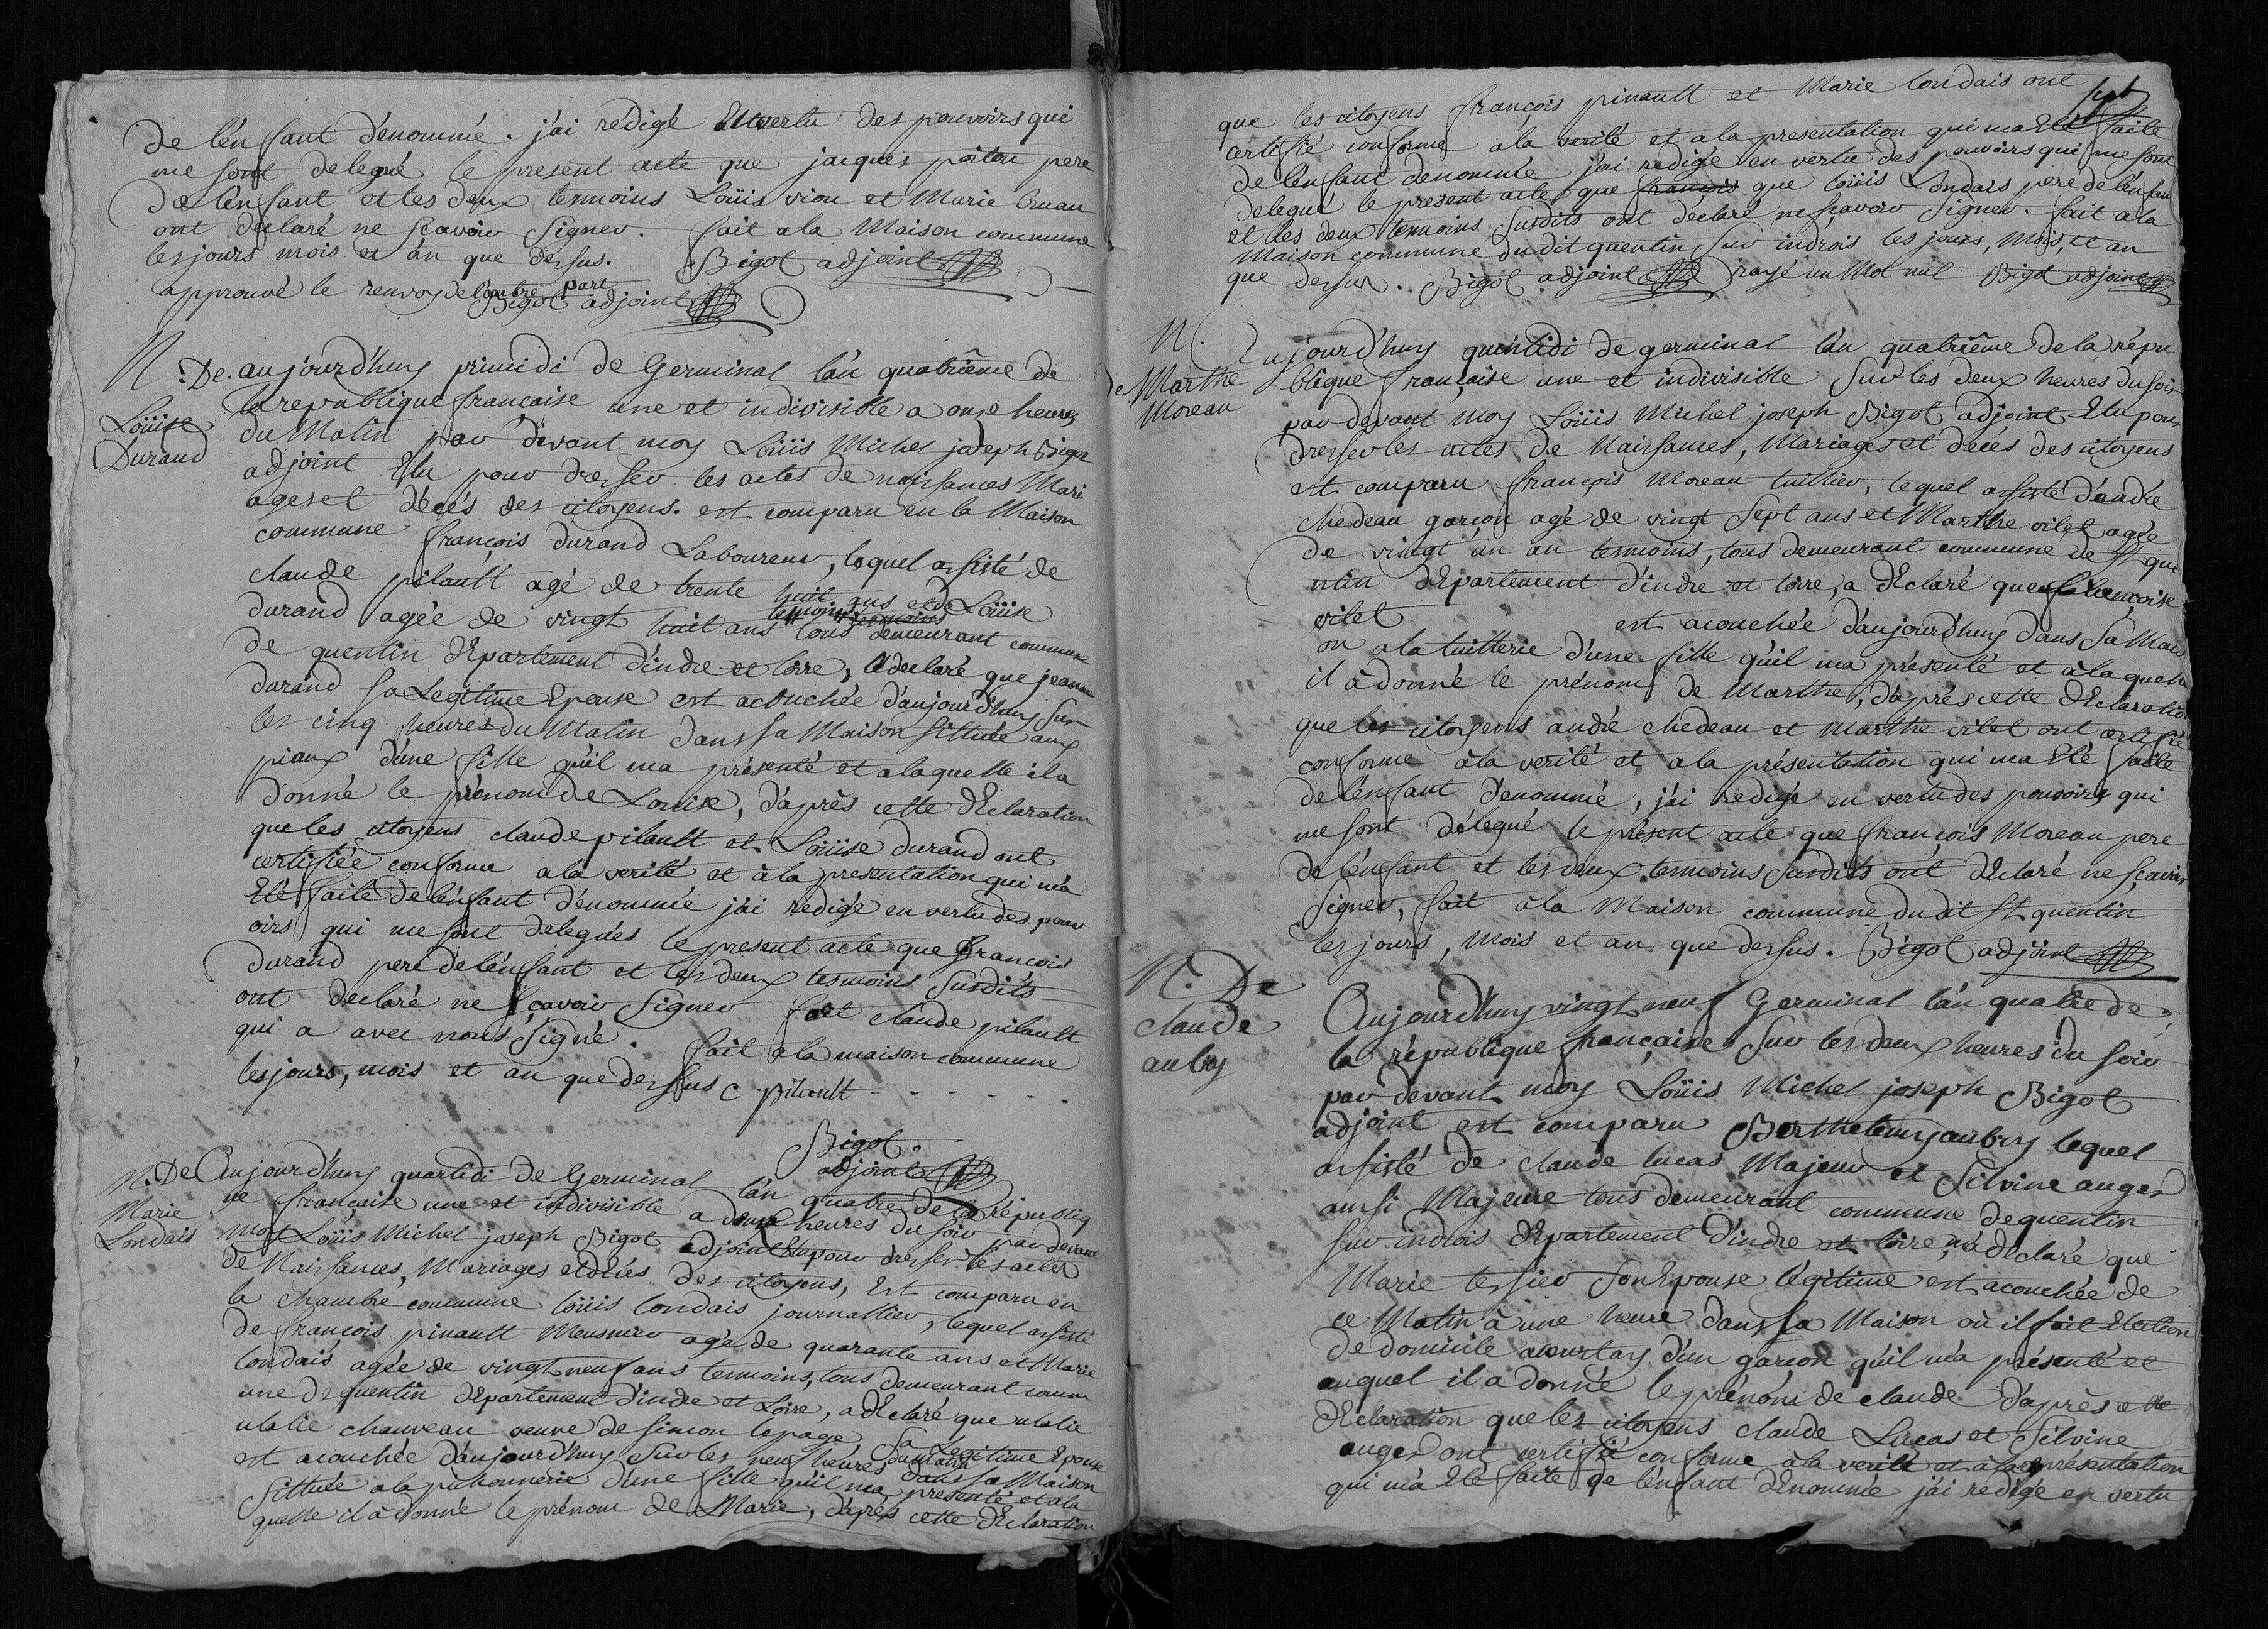 de l'enfant dénommé. j'ai rédigé En vertu des pouvoirs qui
me sont delegué le present acte que jacques poitou pere
de l'enfant et les deux temoins Loüis viou et Marie
ont declaré ne scavoir signer. fait a la Maison commune
les jours mois et an que dessus. Bigot adjoint
approuvé le renvoy de l'autre part
Bigot adjoint
N. De.
Loüise
Durand
aujourd'huy primidi de Germinal l'an quatrième de
la republique francaise une et indivisible a onze heures
du Matin par devant moy Loüis Michel joseph Bigot
adjoint Elu pour dresser les actes de naissances Mari
ages et décés des citoyens. est comparu en la Maison
commune françois durand Laboureur, lequel assisté de
claude pilault agé de trente huit ans et de Loüise
durand agée de vingt huit ans temoins tous demeurant commune
de quentin dEpartement d'indre et loire, a declaré que jeanne
durand sa Legitime Epouse est acouchée d'aujourd'huy sur
les cinq heures du Matin dans sa Maison sittuée aux
piaux d'une fille qu'il ma présenté et a laquelle il a
donné le prénom de Louise, d'après cette dEclaration
que les citoyens claude pilault et Loüise durand ont
certifiée conforme a la verité et à la presentation qui m'a
Eté faite de l'enfant dénommé j'ai redigé en vertu des pouv
oirs qui me sont delegués le present acte que francois
durand pere de l'enfant et les deux temoins susdits
ont declaré ne scavoir signer fort claude pilault
qui a avec nous signé. fait a la maison commune
les jours, mois et an que dessus C pilault
Bigot
adjoint
N. De
Marie
Londais
Aujourd'huy quartidi de Germinal l'an quatre de la républiq
ue française une et indivisible a deux heures du soir par devant
moy Loüis Michel joseph Bigot adjoint Elu pour dresser les actes
de Naissances, Mariages et décés des citoyens, Est comparu en
la chambre commune loüis londais journallier, lequel assisté
de françois pinault Meusnier agé de quarante ans et Marie
londais agée de vingt neuf ans temoins, tous demeurant comm
une de quentin dEpartement d'indre et Loire, a dEclaré que ulalie
ulalie chauveau veuve de simon lepage sa Legitime Epouse
est acouchée d'aujourd'huy sur les neuf heures du matin dans sa Maison
sittuée a la pichonnerie d'une fille qu'il ma presenté et a la
quelle il à donné le prénom de Marie, d'après cette dEclaration
sept
que les citoyens françois pinault et Marie londais ont
certifié conforme a la verité et a la presentation qui ma Eté faite
de l'enfant denommée j'ai redigé en vertu des pouvoirs qui me sont
delegué le present acte que françois que loüis Londais pere de l'enfant
et les deux temoins susdits ont déclaré ne scavoir signer. fait a la
Maison commune du dit quentin sur indrois les jours, Mois, et an
que dessus. Bigot adjoint rayé un Mot nul Bigot adjoint
N.
de Marthe
Moreau
Aujourd'huy quintidi de germinal l'an quatrième de la répu
blique française une et indivisible sur les deux heures du soir
par devant moy Loüis Michel joseph Bigot adjoint Elu pour
dresser les actes de Naissances, Mariages et décés des citoyens
est comparu françois Moreau tuillier, lequel assisté d'andré
chedeau garçon agé de vingt sept ans et Marthe vilet agée
de vingt un an temoins, tous demeurant commune de St que
ntin dEpartement d'indre et loire, a dEclaré que francoise
vilet est acouchée d'aujourd'huy dans sa Mais
on a la tuillerie d'une fille qu'il ma présenté et à laquelle
il à donné le prénom de Marthe, d'après cette dEclaration
que les citoyens andré chedeau et Marthe vilet ont certifié
conforme à la verité et a la présentation qui ma Eté faite
de l'enfant dénommé, j'ai redigé en vertu des pouvoirs qui
me sont délegué le présent acte que françois Moreau pere
de l'enfant et les deux temoins susdits ont dEclaré ne sçavoir
signer, fait à la Maison commune du dit St quentin
les jours, Mois et an que dessus. Bigot adjoint
N. De
claude
aubry
Aujourd'huy vingt neuf Germinal l'an quatre de
la république française sur les deux heures du soir
par devant moy Loüis Michel joseph Bigot
adjoint est comparu Berthelemy aubry lequel
assisté de claude lucas Majeur et Silvine auger
aussi Majeure tous demeurant commune de quentin
sur indrois dEpartement d'indre et loire, m'a dEclaré que
Marie tessier son Epouse légitime est acouchée de
ce Matin à une heure dans sa Maison où il fait Election
de domicile d'un garcon qu'il m'a présenté et
auquel il a donné le prénom de claude d'après cette
dEclaration que les citoyens claude Lucas et Silvine
auger ont certifié conforme à la verité et à la représentation
qui m'a Eté faite de l'enfant dEnommé j'ai redigé en vertu